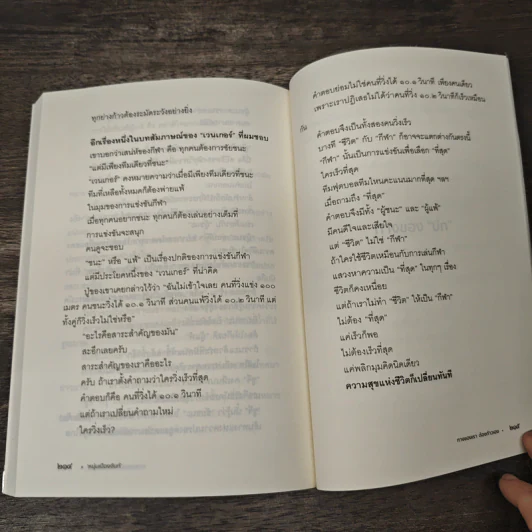 ทุกย่างก้าวต้องระมัดระวังอย่างยิ่ง
อีกเรื่องหนึ่งในบทสัมภาษณ์ของ "เวนเกอร์" ที่ผมชอบ
เขาบอกว่าเสน่ห์ของกีฬา คือ ทุกคนต้องการชัยชนะ
"แต่มีเพียงทีมเดียวที่ชนะ"
"เวนเกอร์" คงหมายความว่าเมื่อมีเพียงทีมเดียวที่ชนะ
ทีมที่เหลือทั้งหมดก็ต้องพ่ายแพ้
ในมุมของการแข่งขันกีฬา
เมื่อทุกคนอยากชนะ ทุกคนก็ต้องเล่นอย่างเต็มที่
การแข่งขันจะสนุก
คนดูจะชอบ
"ชนะ" หรือ "แพ้" เป็นเรื่องปกติของการแข่งขันกีฬา
แต่มีประโยคหนึ่งของ "เวนเกอร์" ที่น่าคิด
ปู่ของเขาเคยกล่าวไว้ว่า "ฉันไม่เข้าใจเลย คนที่วิ่งแข่ง ๑๐๐
เมตร คนชนะวิ่งได้ ๑๐.๑ วินาที ส่วนคนแพ้วิ่งได้ ๑๐.๒ วินาที แต่
ทั้งคู่ก็วิ่งเร็วไม่ใช่หรือ"
"อะไรคือสาระสำคัญของมัน"
สะอึกเลยครับ
สาระสำคัญของเราคืออะไร
ครับ ถ้าเราตั้งคำถามว่าใครวิ่งเร็วที่สุด
คำตอบก็คือ คนที่วิ่งได้ ๑๐.๑ วินาที
แต่ถ้าเราเปลี่ยนคำถามใหม่
ใครวิ่งเร็ว?
๒๑๔ • หนุ่มเมืองจันท์
คำตอบย่อมไม่ใช่คนที่วิ่งได้ ๑๐.๑ วินาที เพียงคนเดียว
เพราะเราปฏิเสธไม่ได้ว่าคนที่วิ่งได้ ๑๐.๒ วินาทีก็เร็วเหมือน
กัน
คำตอบจึงเป็นทั้งสองคนวิ่งเร็ว
บางที "ชีวิต" กับ "กีฬา" ก็อาจจะแตกต่างกันตรงนี้
"กีฬา" นั้นเป็นการแข่งขันเพื่อเลือก "ที่สุด"
ใครเร็วที่สุด
ทีมฟุตบอลทีมไหนคะแนนมากที่สุด ฯลฯ
เมื่อถามถึง "ที่สุด"
คำตอบจึงมีทั้ง "ผู้ชนะ" และ "ผู้แพ้"
มีคนดีใจและเสียใจ
แต่ "ชีวิต" ไม่ใช่ "กีฬา"
ถ้าใครใช้ชีวิตเหมือนกับการเล่นกีฬา
แสวงหาความเป็น "ที่สุด" ในทุกๆ เรื่อง
ชีวิตก็คงเหนื่อย
แต่ถ้าเราไม่ทำ "ชีวิต" ให้เป็น "กีฬา"
ไม่ต้อง "ที่สุด"
แค่เร็วก็พอ
ไม่ต้องเร็วที่สุด
แค่พลิกมุมคิดนิดเดียว
ความสุขแห่งชีวิตก็เปลี่ยนทันที
๒๑๕